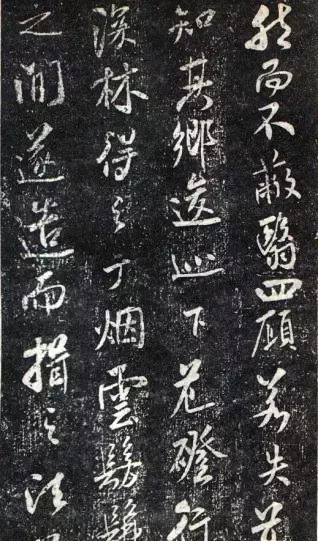 然而不蔽翳四顧若失
知其鄉逡巡下危磴行
深林得之于烟雲髣髴
之間遂造而揖之法